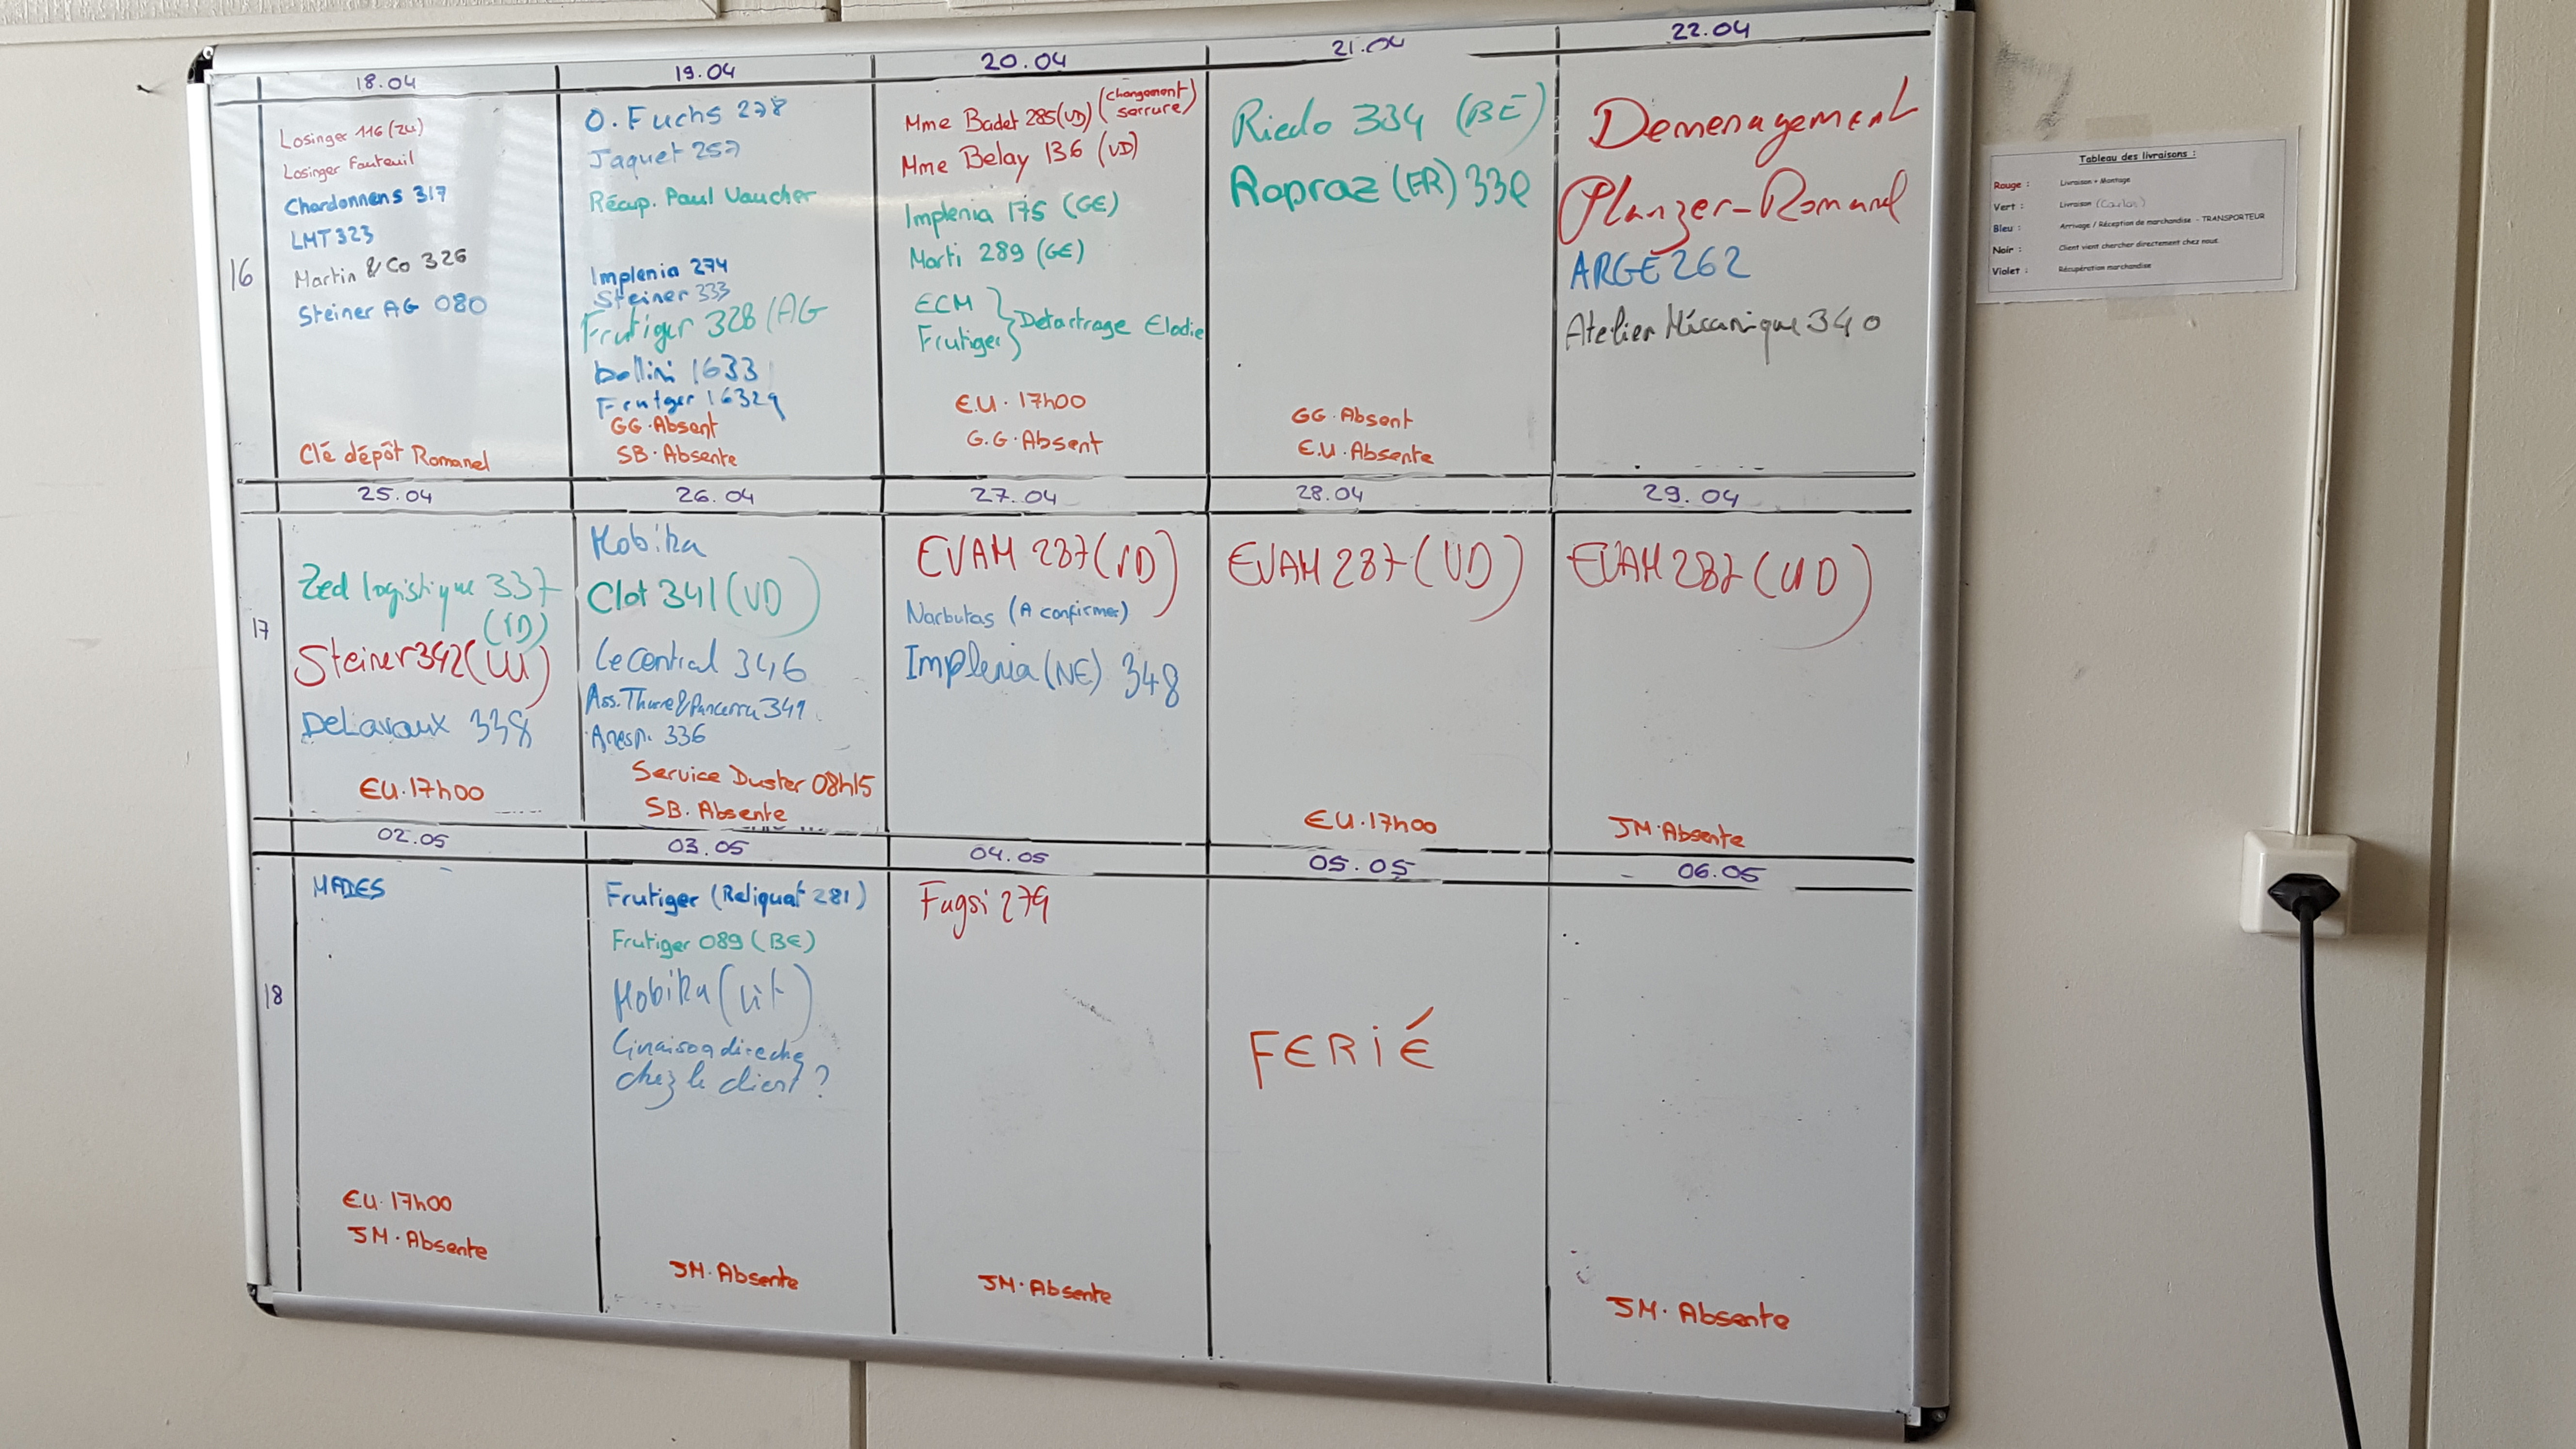 18.04
19.04
20.04
21.04
22.04
16
Losinger 116 (ZU)
Losinger Fauteuil
Chardonnens 317
LMT 323
Martin & Co 326
Steiner AG 080
Clé dépôt Romanel
O. Fuchs 278
Jaquet 257
Récup. Paul Vaucher
Implenia 274
Steiner 333
Frutiger 328 (AG
Bollini 1633
Frutger 1632q
GG. Absent
SB. Absente
Mme Badet 285 (VD) (changement serrure)
Mme Belay 136 (VD)
Implenia 175 (GE)
Marti 289 (GE)
ECM
Frutiger
Detartrage Elodie
E.U. 17h00
G.G. Absent
Riedo 334 (BE)
Rapraz (FR) 332
GG. Absent
E.U. Absente
Demenagement
Planzer-Romanel
ARGE 262
Atelier Mécanique 340
25.04
26.04
27.04
28.04
29.04
17
Zed logistique 337
(VD)
Steiner 342
DeLavaux 338
EU. 17h00
Mobika
Clot 341 (VD)
Le Central 346
Ass. 349
336
Service Duster 08h15
SB. Absente
EVAM 287 (VD)
Narbutas (A confirmer)
Implenia (NE) 348
EVAM 287 (VD)
EU. 17h00
EVAM 287 (VD)
JM. Absente
02.05
03.05
04.05
05.05
06.05
18
MADES
EU. 17h00
JM. Absente
Frutiger (Reliquat 281)
Frutiger 089 (BE)
Mobika (Lit)
Livraison directe
chez le client ?
JM. Absente
Fugsi 279
JM. Absente
FERIÉ
JM. Absente
Tableau des livraisons :
Rouge : Livraison + Montage
Vert : Livraison (Carlos)
Bleu : Arrivage / Réception de marchandise - TRANSPORTEUR
Noir : Client vient chercher directement chez nous
Violet : Récupération marchandise